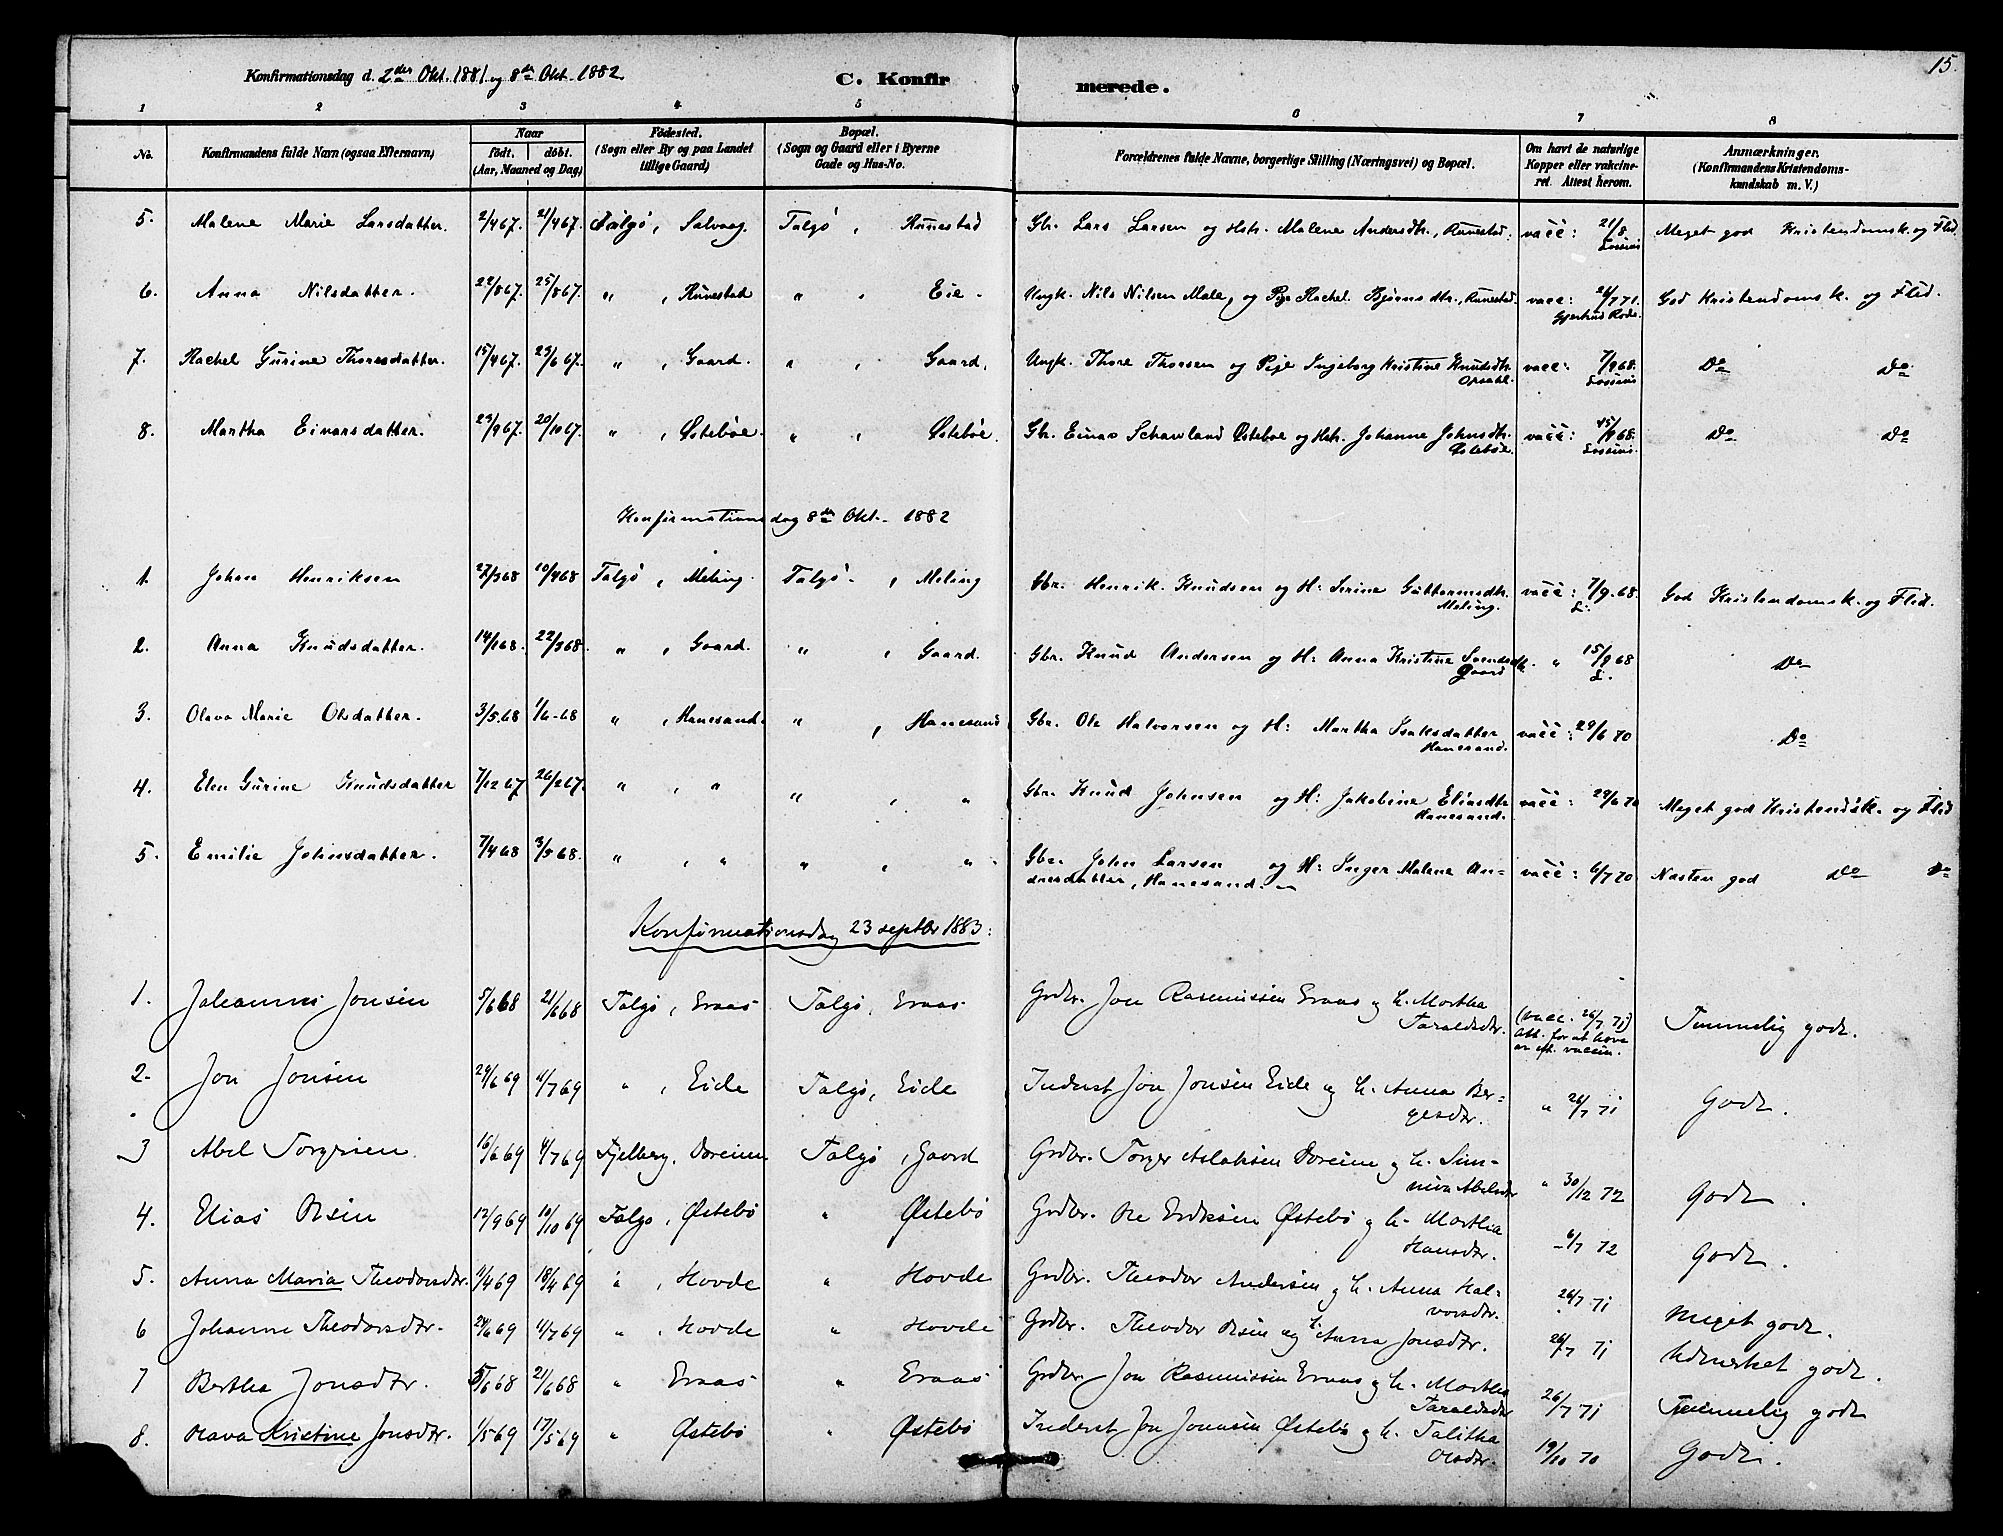 15.
Konfirmationsdag d. 2den Okt. 1881 og 8de Okt. 1882.
C. Konfirmerede.
1 2 3 4 5 6 7 8
No. Konfirmandens fulde Navn (ogsaa Efternavn) Naar født. døbt. (Aar, Maaned og Dag) Fødested. (Sogn eller By og paa Landet tillige Gaard) Bopæl. (Sogn og Gaard eller i Byerne Gade og Hus-No. Forældrenes fulde Navne, borgerlige Stilling (Næringsvei) og Bopæl. Om havt de naturlige Kopper eller vakcineret. Attest herom. Anmærkninger. (Konfirmandens Kristendomskundskab m. V.)
5. Malene Marie Larsdatter. 2/4 67. 21/4 67. Talgø, Salvaag. Talgø, Runestad Gbr. Lars Larsen og Hstr. Malene Andersdtr., Runestad. vacc: 21/8 Meget god Kristendomsk. og Flid.
6. Anna Nilsdatter. 22/8 67. 25/8 67. " , Runestad " , Eie. Ungk. Nils Nilsen Male, og Pige Rachel Bjørnsdtr., Runestad. vacc: 26/7 71. God Kristendomsk. og Flid.
7. Rachel Gurine Thoresdatter. 15/4 67. 23/6 67. " , Gaard. " , Gaard. Ungk. Thore Thorsen og Pige Ingeborg Kristine Knudsdtr. Opsahl. vacc: 7/9 68. Do Do
8. Martha Einarsdatter. 29/9 67. 20/10 67. " , Østebøe. " , Østebøe. Gbr. Einar Schauland Østebøe og Hstr. Johanne Johnsdtr. Østebøe. vacc: 15/9 68. Do Do
Konfirmationsdag 8de Okt. 1882
1. Johan Henriksen 27/3 68 10/4 68 Talgø, Meling. Talgø, Meling Gbr. Henrik Knudsen og H: Serine Guttormsdtr. Meling. vacc: 7/9. 68. God Kristendomsk. og Flid.
2. Anna Knudsdatter. 14/1 68. 22/3 68. " , Gaard. " , Gaard. Gbr. Knud Andersen og H: Anna Kristine Svendsdtr. Gaard " 15/9 68 Do
3. Olava Marie Olsdatter. 3/5. 68 1/6 - 68 " , Hanesand. " , Hanesand, Gbr. Ole Halvorsen og H: Martha Isaksdatter Hanesand. vacc: 29/6 70 Do
4. Elen Gurine Knudsdatter 7/12 67 26/12 67. " , " " , " Gbr. Knud Johnsen og H: Jakobine Eliasdtr. Hanesand. vacc: 29/6 70 Meget god Kristendsk. og Flid
5. Emilie Johnsdatter. 7/4 68 3/5 68. " , " " , " Gbr. John Larsen og H: Inger Malene Andersdatter, Hanesand. vacc: 6/7 70 Næsten god Do Do
Konfirmationsdag 23 septbr 1883:
1. Johannes Jonsen 5/6 68 21/6 68 Talgø, Eraas Talgø, Eraas Grdbr. Jon Rasmussen Eraas og h. Martha Taraldsdtr. (vacc. 26/7 71) Att. for at have Temmelig godt.
2. Jon Jonsen 29/6 69 11/7 69 " , Eide Talgø, Eide Inderst Jon Jonsen Eide og h. Anna Bergesdtr. " 26/7 71 Godt.
3 Abel Torgersen. 16/6 69 4/7 69 Fjelberg, Døreim Talgø, Gaard Grdbr. Torger Aslaksen Døreim og h. Sunniva Abelsdtr " 30/12 72 Godt.
4. Elias Olsen 12/9 69 10/10 69 Talgø, Østebø " Østebø Grdbr. Ole Eriksen Østebø og h. Martha Hansdtr. - 6/7 72 Godt.
5. Anna Maria Theodorsdtr. 11/4 69 18/4 69 " , Hovde " Hovde Grdbr. Theodor Andersen og h. Anna Halvorsdtr. 26/7 71 Meget godt.
6 Johanne Theodorsdtr. 24/6 69 11/7 69 " , Hovde " Hovde Grdbr. Theodor Olsen og h. Anna Jonsdtr. 26/7 71 Udmerket godt.
7 Bertha Jonsdtr. 5/6 68 21/6 68 " Eraas " Eraas Grdbr Jon Rasmussen Eraas og h. Martha Taraldsdtr 26/7 71 Temmelig godt
8. Olava Kristine Jonsdtr. 1/5 69 17/5 69 " Østebø " Østebø Inderst Jon Jonassen Østebø og h. Talitha Olsdtr. 19/10 70 Godt.